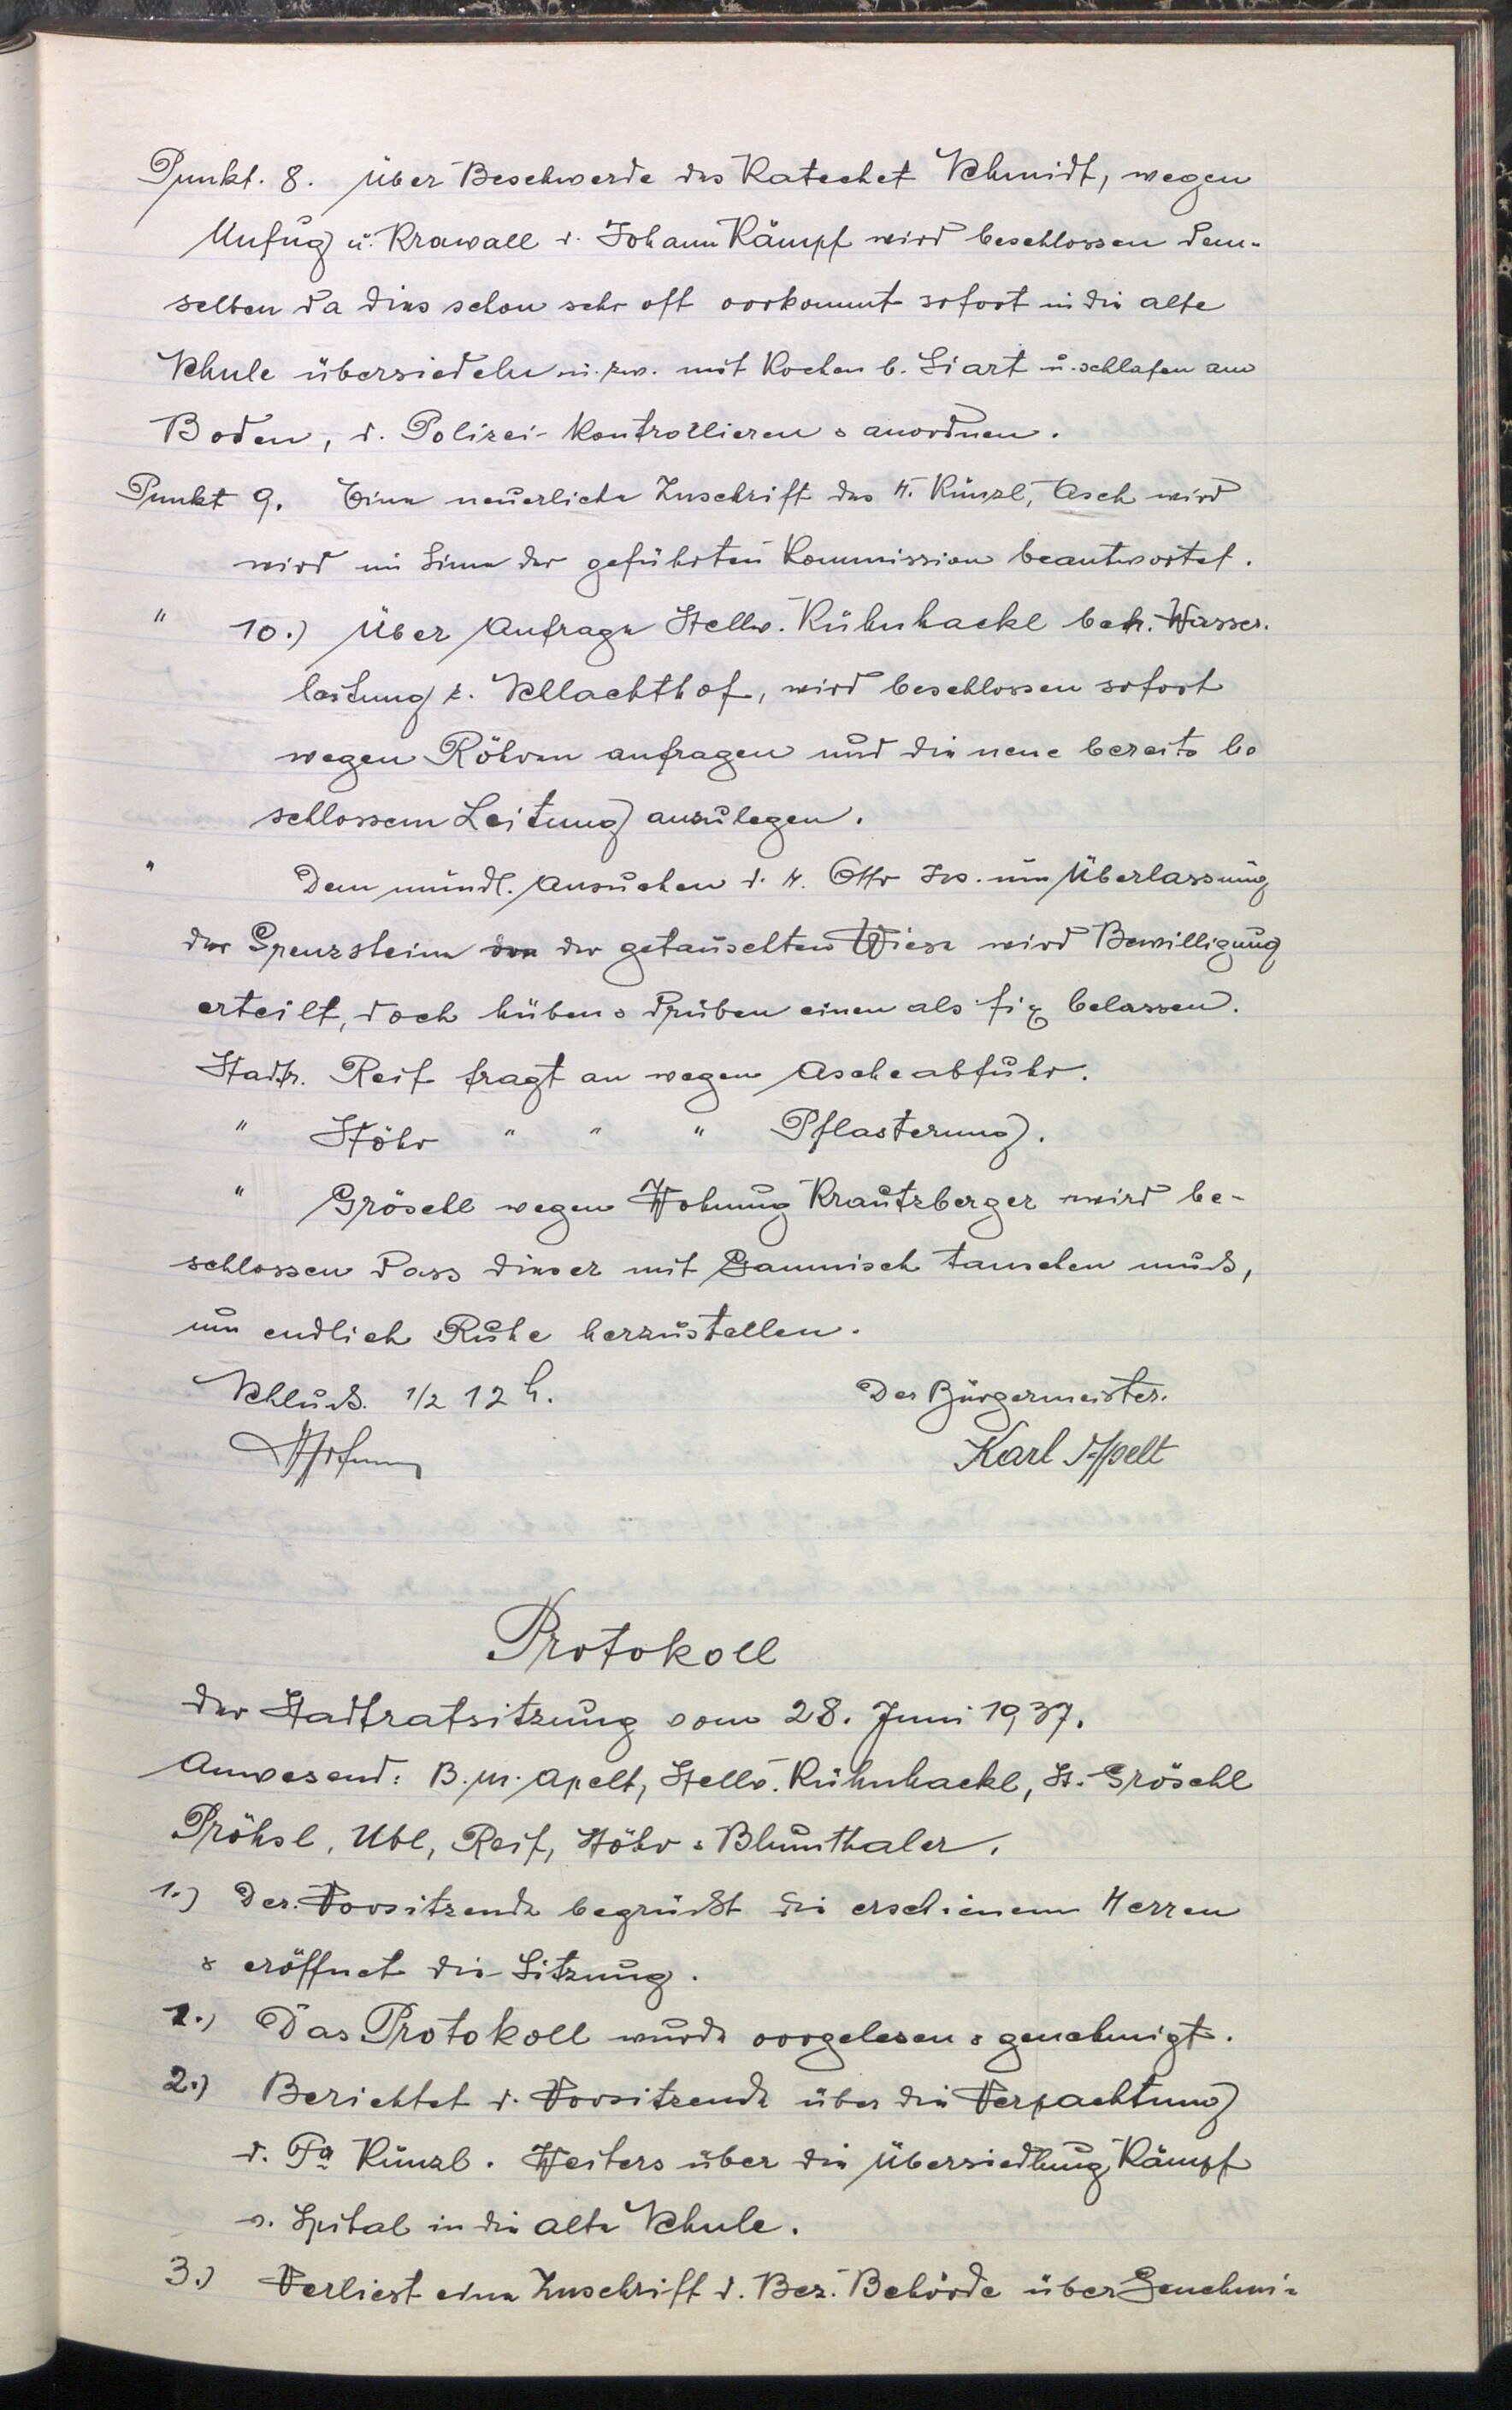 Punkt. 8. Über Beschwerde des Katechet Schmidt, wegen
Unfug u. Krawall d. Johann Kämpf wird beschlossen dem-
selben da dies schon sehr oft vorkommt sofort in die alte
Schule übersiedeln u. zw. mit Kochen b. Liart u. schlafen am
Boden, d. Polizei-Kontrollieren & anordnen.
Punkt 9. Eine neuerliche Zuschrift des H. Künzl, Asch wird
wird im Sinne der geführten Kommission beantwortet.
" 10.) Über Anfrage Stellv. Kühnhackl betr. Wasser-
leitung z. Schlachthof, wird beschlossen sofort
wegen Röhren anfragen und die neue bereits be
schlossene Leitung anzulegen.
" Dem mündl. Ansuchen d. H. Otto Jos. um Überlassung
der Grenzsteine der getauschten Wiese wird Bewilligung
erteilt, doch hüben & drüben einen als fix belassen.
Stadtr. Reif fragt an wegen Ascheabfuhr.
" Stöhr " " " Pflasterung.
" Gröschl wegen Wohnung Krautzberger wird be-
schlossen dass dieser mit Gamnisch tauschen muß,
um endlich Ruhe herzustellen.
Schluß. 1/2 12 h. Der Bürgermeister.
Karl Apelt
Protokoll
der Stadtratsitzung vom 28. Juni 1937.
Anwesend: B.m. Apelt, Stellv. Kühnhackl, St. Gröschl
Pröhsl, Ubl, Reif, Stöhr & Blumthaler.
1.) Der Vorsitzende begrüßt die erschienenen Herren
& eröffnet die Sitzung.
1.) Das Protokoll wurde vorgelesen & genehmigt.
2.) Berichtet d. Vorsitzende über die Verpachtung
d. Fa Künzl. Weiters über die Übersiedlung Kämpf
v. Spital in die alte Schule.
3.) Verliest eine Zuschrift d. Bez. Behörde über Genehmi-